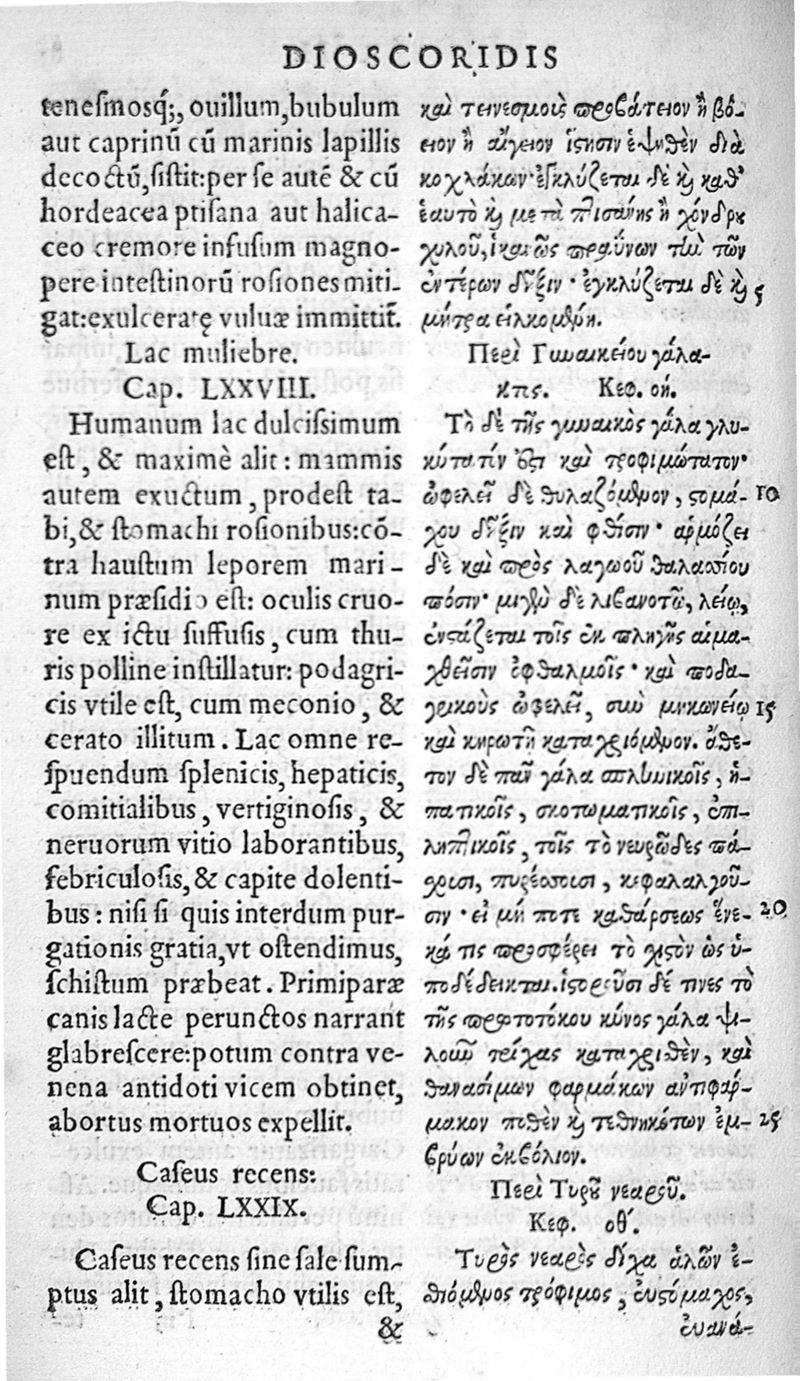 DIOSCORIDIS
teneſmosq́;, ouillum, bubulum
aut caprinũ cũ marinis lapillis
decoctũ, ſiſtit: per ſe autẽ & cũ
hordeacea ptiſana aut halica-
ceo cremore infuſum magno-
pere inteſtinorũ roſiones miti-
gat: exulceratę vuluæ immittit̃.
Lac muliebre.
Cap. LXXVIII.
Humanum lac dulciſſimum
eſt, & maximè alit: mammis
autem exuctum, prodeſt ta-
bi, & ſtomachi roſionibus: cõ-
tra hauſtum leporem mari-
num præſidio eſt: oculis cruo-
re ex ictu ſuffuſis, cum thu-
ris polline inſtillatur: podagri-
cis vtile eſt, cum meconio, &
cerato illitum. Lac omne re-
ſpuendum ſplenicis, hepaticis,
comitialibus, vertiginoſis, &
neruorum vitio laborantibus,
febriculoſis, & capite dolenti-
bus: niſi ſi quis interdum pur-
gationis gratia, vt oſtendimus,
ſchiſtum præbeat. Primiparæ
canis lacte perunctos narrant
glabreſcere: potum contra ve-
nena antidoti vicem obtinet,
abortus mortuos expellit.
Caſeus recens:
Cap. LXXIX.
Caſeus recens ſine ſale ſum-
ptus alit, ſtomacho vtilis eſt,
&
καὶ τεινεσμοῖς προβάτειον ἢ βό-
ειον ἢ αἴγειον ἵστησιν ἑψηθὲν διὰ
κοχλάκων· ἐγκλύζεται δὲ κỳ καθ᾽
ἑαυτὸ κỳ μετὰ πτισάνης ἢ χόνδρȣ
χυλοῦ, ἱκανῶς πραΰνων τὴν τῶν
ἐντέρων δῆξιν· ἐγκλύζεται δὲ κỳ 5
μήτρα εἱλκομένη.
Περὶ Γυναικείου γάλα-
κτος. Κεφ. οή.
Τὸ δὲ τῆς γυναικὸς γάλα γλυ-
κύτατόν ἐστι καὶ τροφιμώτατον·
ὠφελεῖ δὲ θηλαζόμενον, στομά- 10
χου δῆξιν καὶ φθίσιν· ἁρμόζει
δὲ καὶ πρὸς λαγωοῦ θαλασσίου
πόσιν· μιγὲν δὲ λιβανωτῷ, λείῳ,
ἐνστάζεται τοῖς ἐκ πληγῆς αἱμα-
χθεῖσιν ὀφθαλμοῖς· καὶ ποδα-
γρικοὺς ὠφελεῖ, σὺν μηκωνείῳ 15
καὶ κηρωτῇ καταχριόμενον. ἄθε-
τον δὲ πᾶν γάλα σπληνικοῖς, ἡ-
πατικοῖς, σκοτωματικοῖς, ἐπι-
ληπτικοῖς, τοῖς τὸ νευρῶδες πά-
σχουσι, πυρέσσουσι, κεφαλαλγοῦ-
σιν· εἰ μή ποτε καθάρσεως ἕνε- 20
κά τις προσφέρει τὸ σχιστὸν ὡς ὑ-
ποδέδεικται. ἱστοροῦσι δέ τινες τὸ
τῆς πρωτοτόκου κύνος γάλα ψι-
λοῦν τρίχας καταχρισθὲν, καὶ
θανασίμων φαρμάκων ἀντιφάρ-
μακον ποθὲν κỳ τεθνηκότων ἐμ- 25
βρύων ἐκβόλιον.
Περὶ Τυρȣ͂ νεαροῦ.
Κεφ. οθ΄.
Τυρὸς νεαρὸς δίχα ἁλῶν ἐ-
θιόμενος τρόφιμος, εὐστόμαχος,
εὐανά-